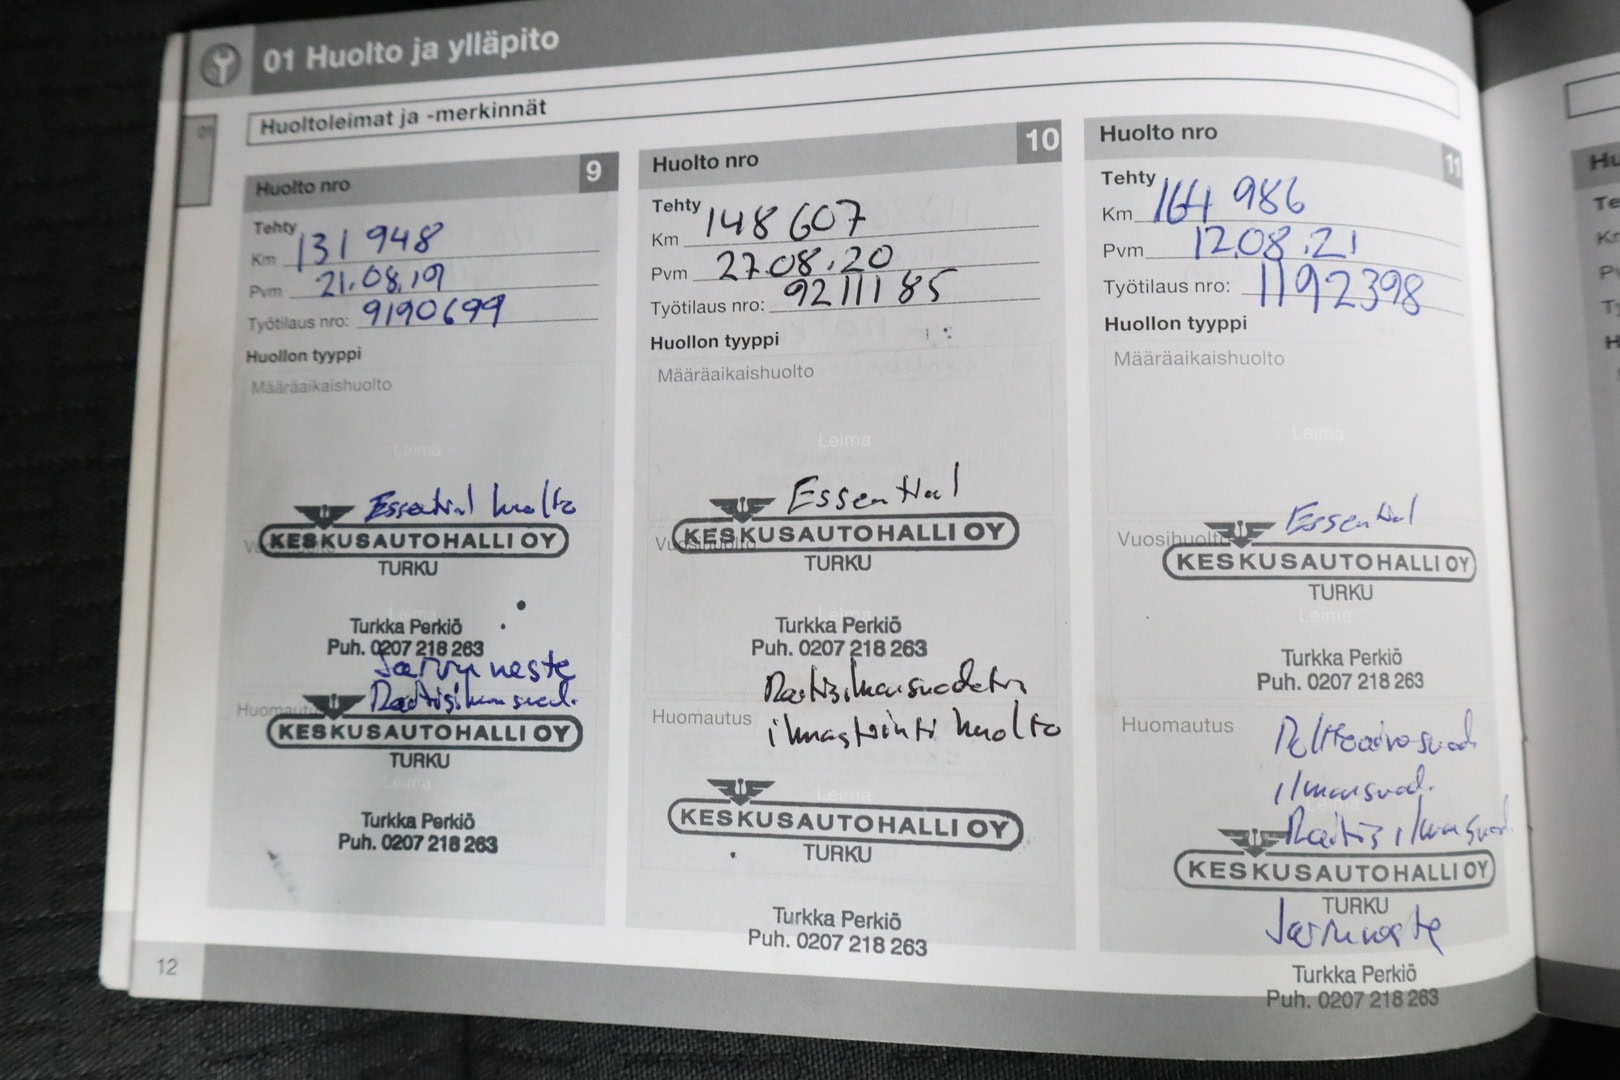 01 Huolto ja ylläpito
01
Huoltoleimat ja -merkinnät
Huolto nro 9
Tehty
Km 131 948
Pvm 21.08.19
Työtilaus nro: 9190699
Huollon tyyppi
Määräaikaishuolto
Leima
Essential huolto
Vuosihuolto
KESKUSAUTOHALLI OY
TURKU
Leima
Turkka Perkiö
Puh. 0207 218 263
Jarruneste
Raitisilmansuod.
Huomautus
KESKUSAUTOHALLI OY
TURKU
Leima
Turkka Perkiö
Puh. 0207 218 263
Huolto nro 10
Tehty
Km 148 607
Pvm 27.08.20
Työtilaus nro: 9211185
Huollon tyyppi
Määräaikaishuolto
Leima
Essential
Vuosihuolto
KESKUSAUTOHALLI OY
TURKU
Leima
Turkka Perkiö
Puh. 0207 218 263
Raitisilmansuodatin
Huomautus
ilmastointi huolto
Leima
KESKUSAUTOHALLI OY
TURKU
Turkka Perkiö
Puh. 0207 218 263
Huolto nro 11
Tehty
Km 164 986
Pvm 12.08.21
Työtilaus nro: 1192398
Huollon tyyppi
Määräaikaishuolto
Leima
Essential
Vuosihuolto
KESKUSAUTOHALLI OY
TURKU
Leima
Turkka Perkiö
Puh. 0207 218 263
Huomautus
ilmansuod.
Leima
Raitisilmasuod.
KESKUSAUTOHALLI OY
TURKU
Jarruneste
Turkka Perkiö
Puh. 0207 218 263
12